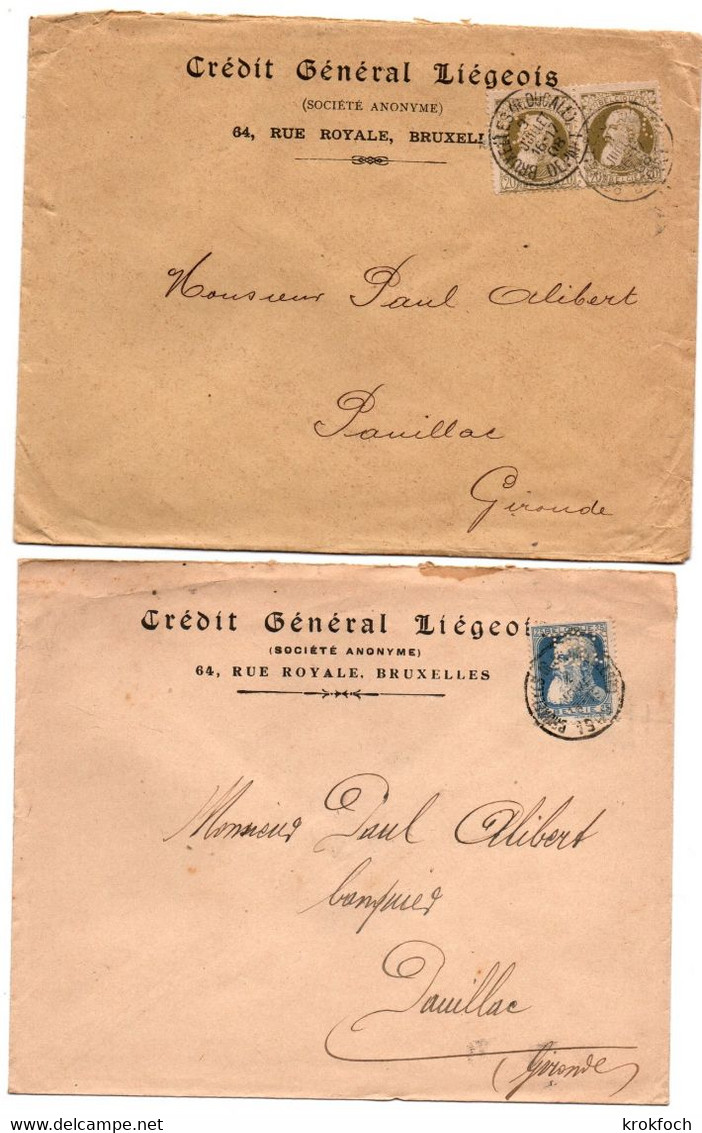 Crédit Général Liégeois
(SOCIÉTÉ ANONYME)
64, RUE ROYALE, BRUXEL
BRUXELLES (R. DUCALE)
16-17
08
BELGIQUE
20
Monsieur Paul Alibert
Pauillac
Gironde
Crédit Général Liégeois
(SOCIÉTÉ ANONYME)
64, RUE ROYALE, BRUXELLES
BELGIE
25
Monsieur Paul Alibert
banquier
Pauillac
(Gironde)
krokfoch
www.delcampe.net